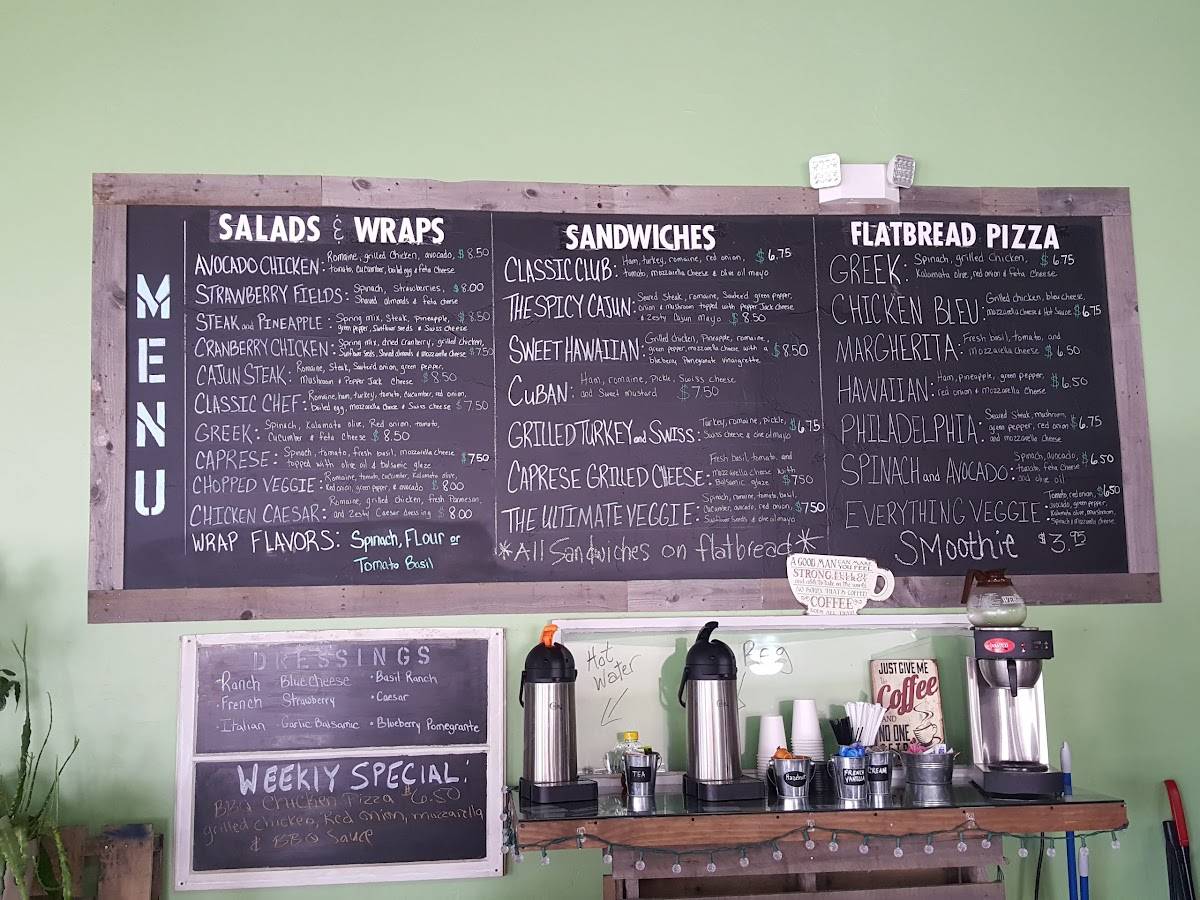 MENU
SALADS & WRAPS
AVOCADO CHICKEN: Romaine, grilled Chicken, avocado, $8.50
tomato, cucumber, boiled egg & feta cheese
STRAWBERRY FIELDS: Spinach, Strawberries, $8.00
Shaved almonds & feta chese
STEAK and PINEAPPLE: Spring mix, Steak, Pineapple, $8.50
green pepper, Sunflower seeds & Swiss cheese
CRANBERRY CHICKEN: Spring mix, dried Cranberry, grilled chicken,
Sunflower Seeds, Shaved almonds & Mozzarella Cheese $7.50
CAJUN STEAK: Romaine, Steak, Sauteed onion, green pepper,
Mushroom & Pepper Jack Cheese $8.50
CLASSIC CHEF: Romaine, ham, turkey, tomato, cucumber, red onion,
Boiled egg, mozzarella Cheese & Swiss cheese $7.50
GREEK: Spinach, Kalamata olive, Red onion, tomato,
Cucumber & feta cheese $8.50
CAPRESE: Spinach, tomato, fresh basil, mozzarella cheese $7.50
topped with olive oil & balsamic glaze
CHOPPED VEGGIE: Romaine, tomato, cucumber, Kalamata olive,
Red onion, green pepper, & avocado $8.00
CHICKEN CAESAR: Romaine, grilled chicken, fresh Parmesan,
and Zesty Caesar dressing $8.00
WRAP FLAVORS: Spinach, FLour or
Tomato Basil
SANDWICHES
CLASSIC CLUB: Ham, turkey, romaine, red onion, $6.75
tomato, mozzarella Cheese & olive oil mayo
THE SPICY CAJUN: Seared Steak, romaine, Sauteed green pepper,
onion & mushroom topped with pepper Jack cheese
& Zesty Cajun Mayo $8.50
SWEET HAWAIIAN: Grilled Chicken, Pineapple, romaine,
green pepper, mozzarella cheese with a $8.50
blueberry Pomegranate vinaigrette
CUBAN: Ham, romaine, Pickle, Swiss cheese
and Sweet mustard $7.50
GRILLED TURKEY and SWISS: Turkey, romaine, pickle, $6.75
Swiss cheese & olive oil mayo
CAPRESE GRILLED CHEESE: Fresh basil, tomato, and
mozzarella cheese with
Balsamic glaze $7.50
THE ULTIMATE VEGGIE: Spinach, romaine, tomato, basil,
Cucumber, avocado, red onion, $7.50
Sunflower Seeds & olive oil mayo
*All Sandwiches on flatbread*
FLATBREAD PIZZA
GREEK: Spinach, grilled Chicken, $6.75
Kalamata olive, red onion & feta cheese
CHICKEN BLEU: Grilled chicken, bleu cheese,
mozzarella cheese & Hot Sauce $6.75
MARGHERITA: Fresh basil, tomato, and
mozzarella cheese $6.50
HAWAIIAN: Ham, pineapple, green pepper, $6.50
red onion & mozzarella cheese
PHILADELPHIA: Seared Steak, mushroom,
green pepper, red onion $6.75
and mozzarella cheese
SPINACH and AVOCADO: Spinach, avocado, $6.50
tomato, feta Cheese
and olive oil
EVERYTHING VEGGIE: Tomato, red onion, $6.50
avocado, green pepper,
Kalamata olive, mushroom,
Spinach & mozzarella cheese
SMoothie $3.95
DRESSINGS
·Ranch Blue Cheese ·Basil Ranch
·French Strawberry ·Caesar
·Italian ·Garlic Balsamic ·Blueberry Pomegrante
WEEKLY SPECIAL:
BBQ CHICKEN Pizza $6.50
grilled chicken, Red onion, muzzarella
& BBQ Sauce
A GOOD MAN CAN MAKE
YOU FEEL
STRONG
and able to take on the world
COFFEE
Hot
Water
Reg
JUST GIVE ME
Coffee
AND
NO ONE
TEA
Hazelnut
FRENCH
VANILLA
CREAM